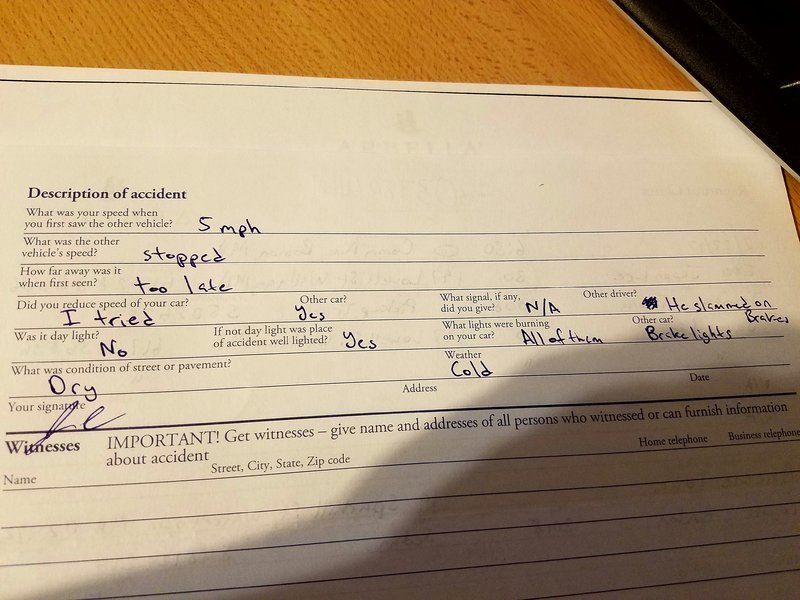 Description of accident
What was your speed when
you first saw the other vehicle? 5 mph
What was the other
vehicle's speed? stopped
How far away was it
when first seen? too late
Did you reduce speed of your car? Other car? What signal, if any, Other driver?
I tried yes did you give? N/A He slammed on
Brakes
Was it day light? If not day light was place What lights were burning Other car?
No of accident well lighted? Yes on your car? All of them Brake lights
What was condition of street or pavement? Weather
Dry Cold
Your signature Address Date
Witnesses IMPORTANT! Get witnesses – give name and addresses of all persons who witnessed or can furnish information
about accident
Name Street, City, State, Zip code Home telephone Business telephone